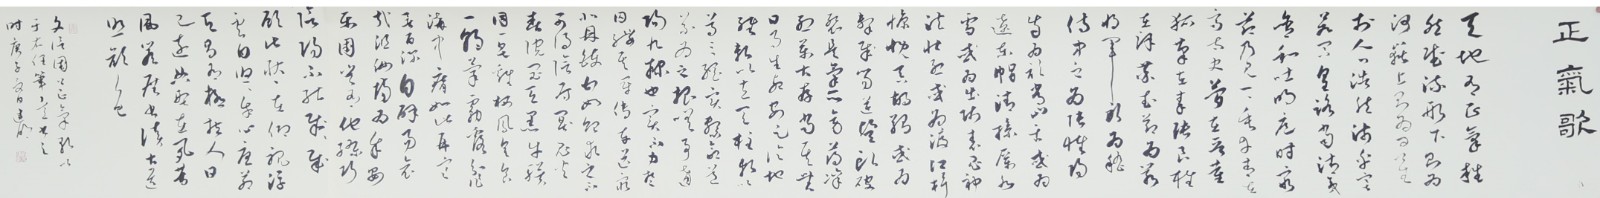 正氣歌
天地有正氣雜
然賦流形下則為
河嶽上則為日星
於人曰浩然沛乎塞
蒼冥皇路當清夷
含和吐明庭時窮
節乃見一一垂丹青在
齊太史簡在晉董
狐筆在秦張良椎
在漢蘇武節為嚴
將軍頭為嵇
侍中血為張睢陽
齒為顏常山舌或為
遼東帽清操厲冰
雪或為出師表鬼神
泣壯烈或為渡江楫
慷慨吞胡羯或為
擊賊笏逆豎頭破
裂是氣所磅礴凜
烈萬古存當其貫
日月生死安足論地
維賴以立天柱賴以
尊三綱實繫命道
義為之根嗟予遘
陽九隸也實不力楚
囚纓其冠傳車送窮
北鼎鑊甘如飴求之不
可得陰房闃鬼火
春院閟天黑牛驥
同一皂雞棲鳳凰食
一朝蒙霧露分作
溝中瘠如此再寒
暑百沴自辟易哀
哉沮洳場為我安
樂國豈有他繆巧
陰陽不能賊
顧此耿耿在仰視浮
雲白悠悠我心悲蒼
天曷有極哲人日
已遠典刑在夙昔
風簷展書讀古道
照顏色
文信國公正氣歌以
于右任筆意書之
時庚子夏日